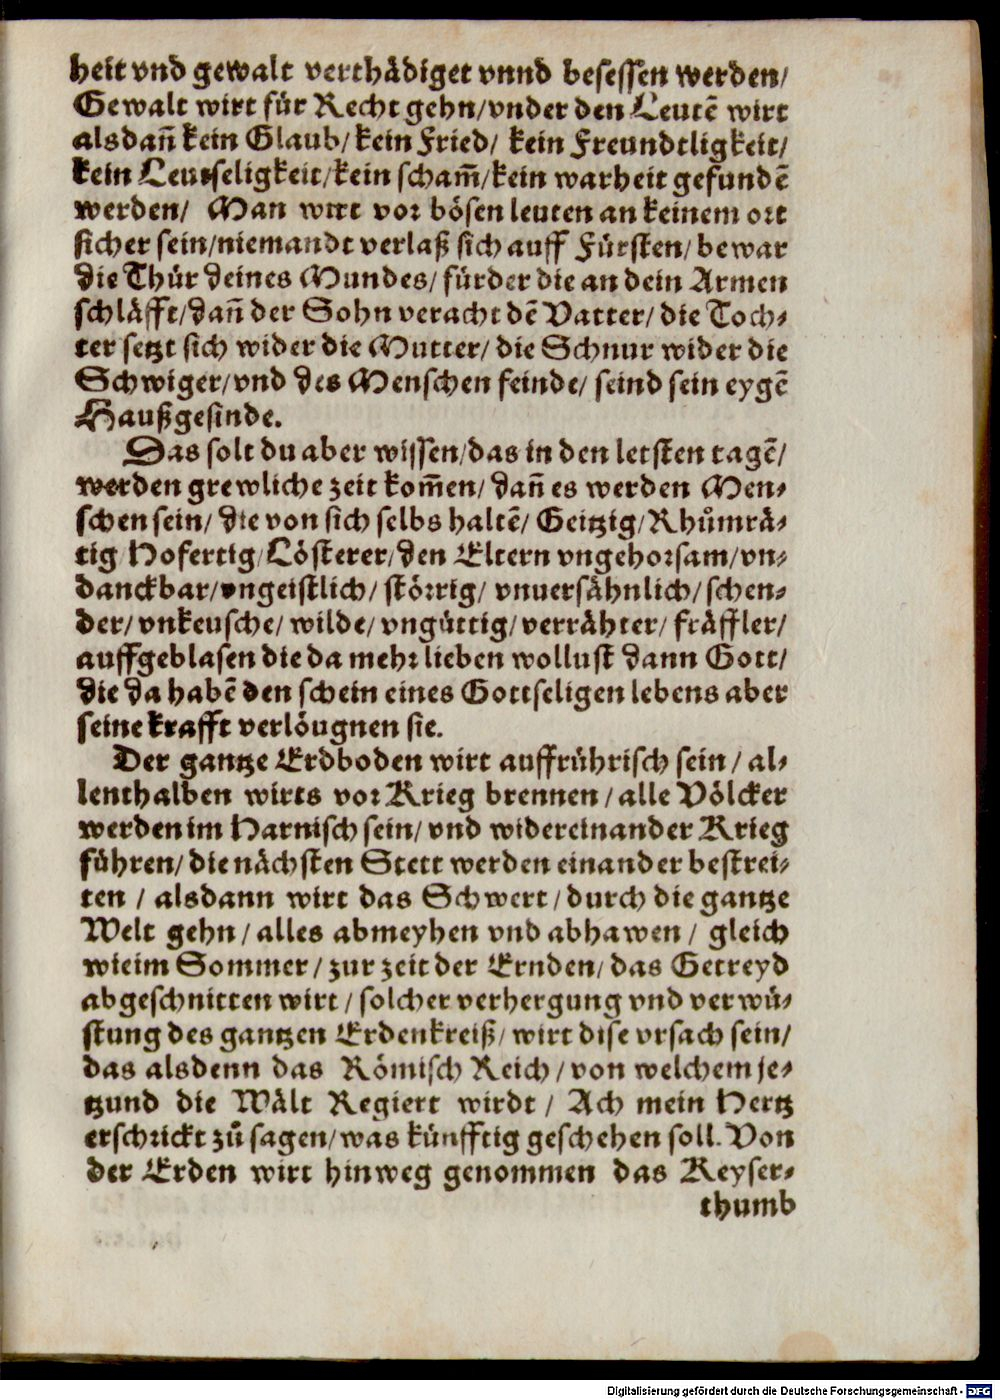 heit vnd gewalt verthädiget vnnd besessen werden/
Gewalt wirt für Recht gehn/vnder den Leutē wirt
alsdañ kein Glaub/kein Fried/ kein Freundtligkeit/
kein Leutseligkeit/kein scham̃/kein warheit gefundē
werden/ Man wirt vor bösen leuten an keinem ort
sicher sein/niemandt verlaß sich auff Fürsten/bewar
die Thür deines Mundes/fürder die an dein Armen
schläfft/dañ der Sohn veracht dē Vatter/die Toch-
ter setzt sich wider die Mutter/die Schnur wider die
Schwiger/vnd des Menschen feinde/seind sein eygē
Haußgesinde.
Das solt du aber wissen/das in den letsten tagē/
werden grewliche zeit kom̃en/dañ es werden Men-
schen sein/die von sich selbs haltē/Geitzig/Rhůmrä-
tig/Hofertig/Lösterer/den Eltern vngehorsam/vn-
danckbar/vngeistlich/störrig/vnuersähnlich/schen-
der/vnkeusche/wilde/vngüttig/verrähter/fräffler/
auffgeblasen die da mehr lieben wollust dann Gott/
die da habē den schein eines Gottseligen lebens aber
seine krafft verlöugnen sie.
Der gantze Erdboden wirt auffrührisch sein/al-
lenthalben wirts vor Krieg brennen/alle Völcker
werden im Harnisch sein/vnd widereinander Krieg
führen/die nächsten Stett werden einander bestrei-
ten / alsdann wirt das Schwert/durch die gantze
Welt gehn/alles abmeyhen vnd abhawen/ gleich
wie im Sommer/zur zeit der Ernden/das Getreyd
abgeschnitten wirt/solcher verhergung vnd verwü-
stung des gantzen Erdenkreiß/wirt dise vrsach sein/
das alsdenn das Römisch Reich/von welchem je-
tzund die Wält Regiert wirdt / Ach mein Hertz
erschrickt zů sagen/was künfftig geschehen soll. Von
der Erden wirt hinweg genommen das Keyser-
thumb
Digitalisierung gefördert durch die Deutsche Forschungsgemeinschaft - DFG